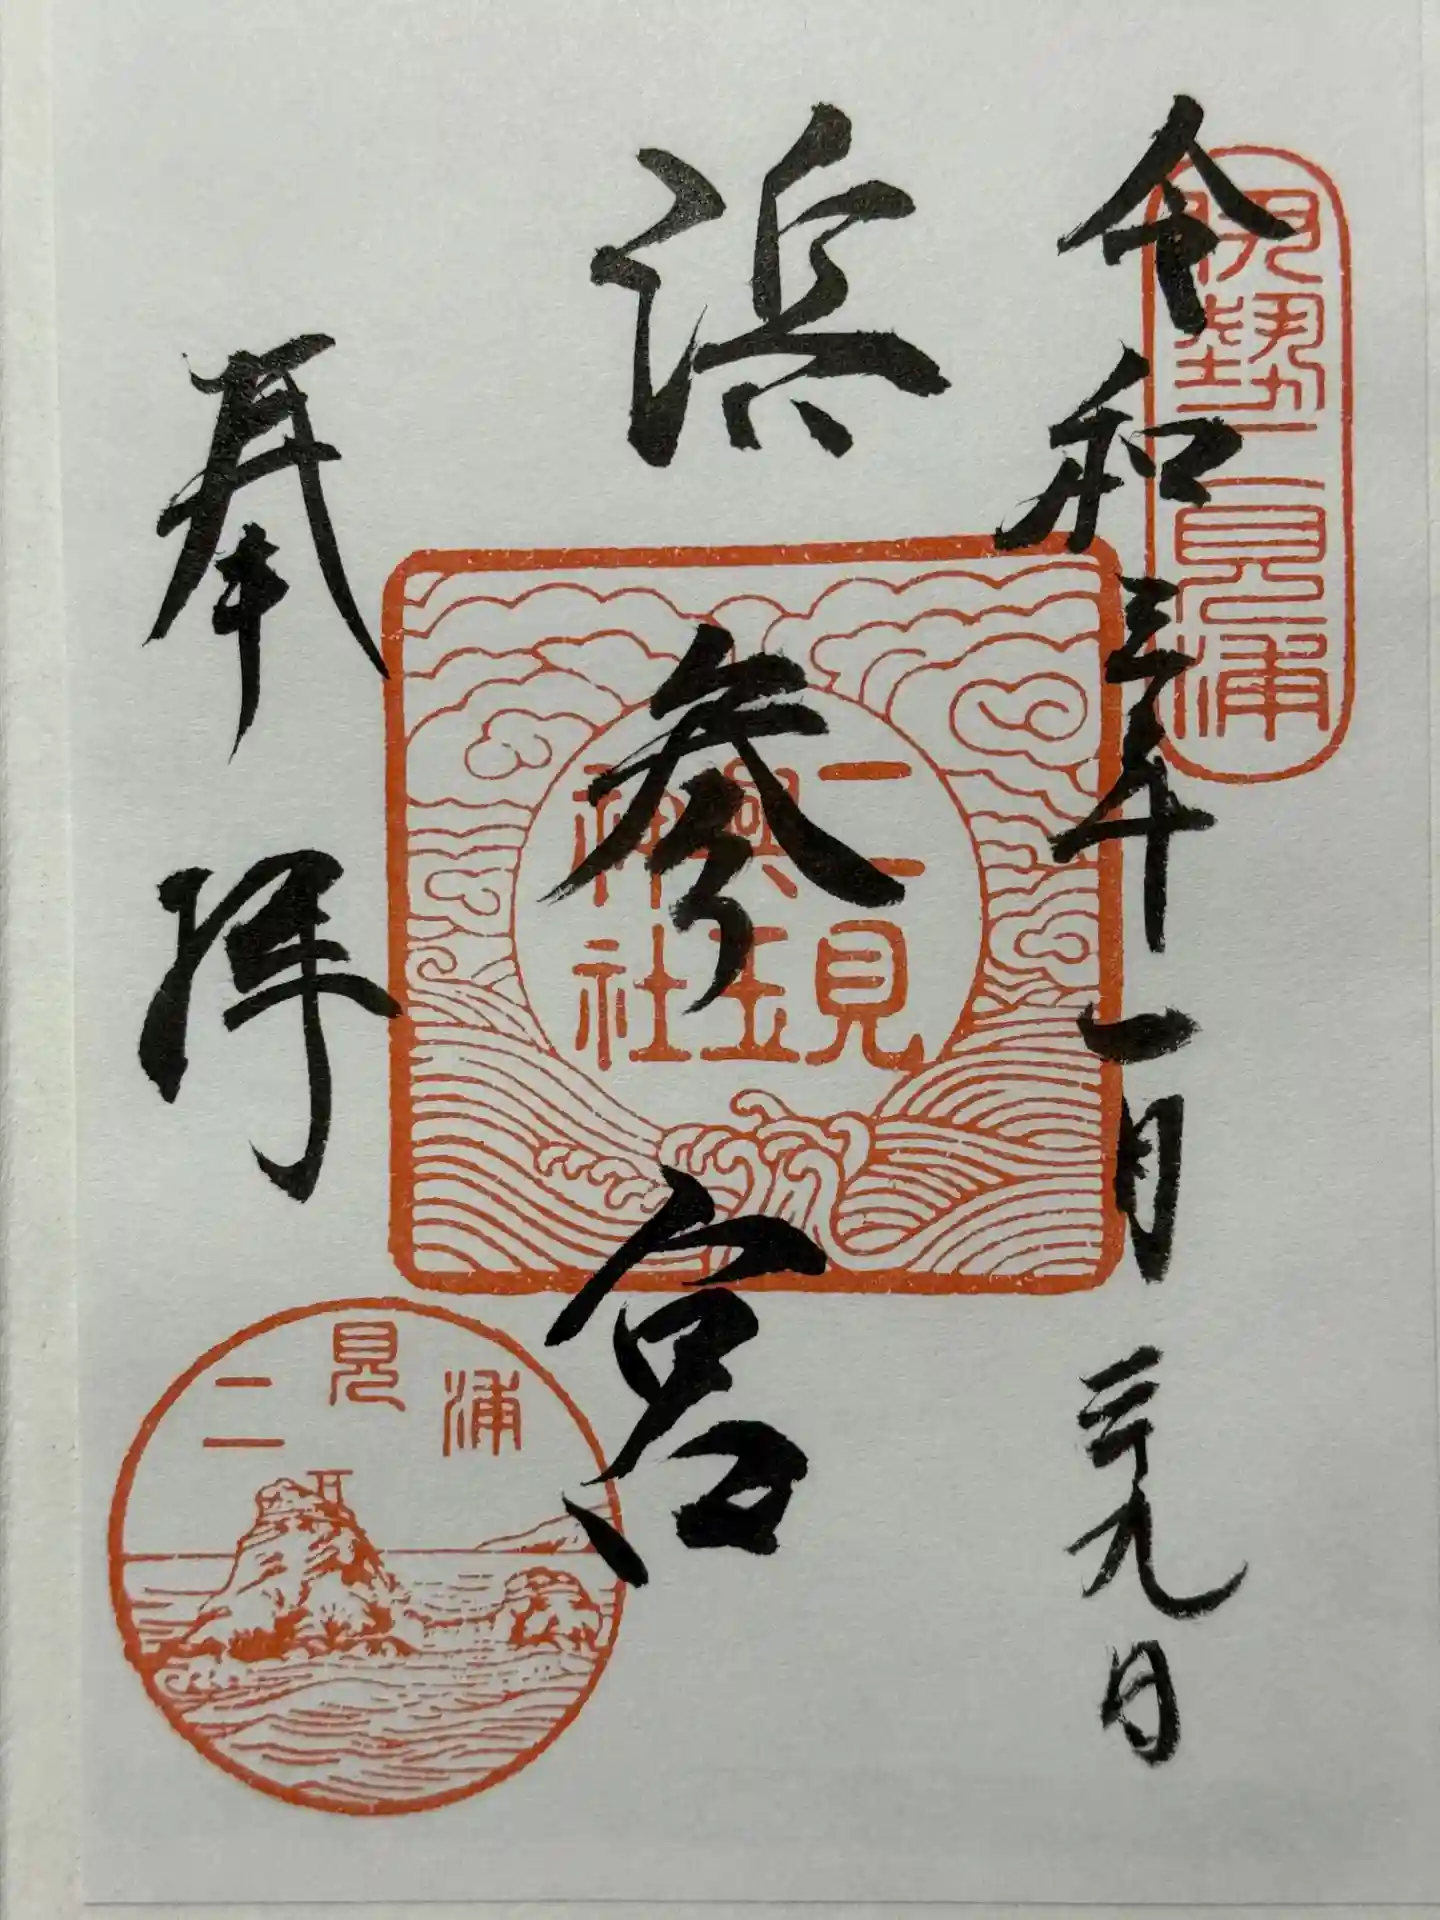 令和三年一月二十九日
伊勢二見浦
浜参宮
二見興玉神社
奉拝
二見浦